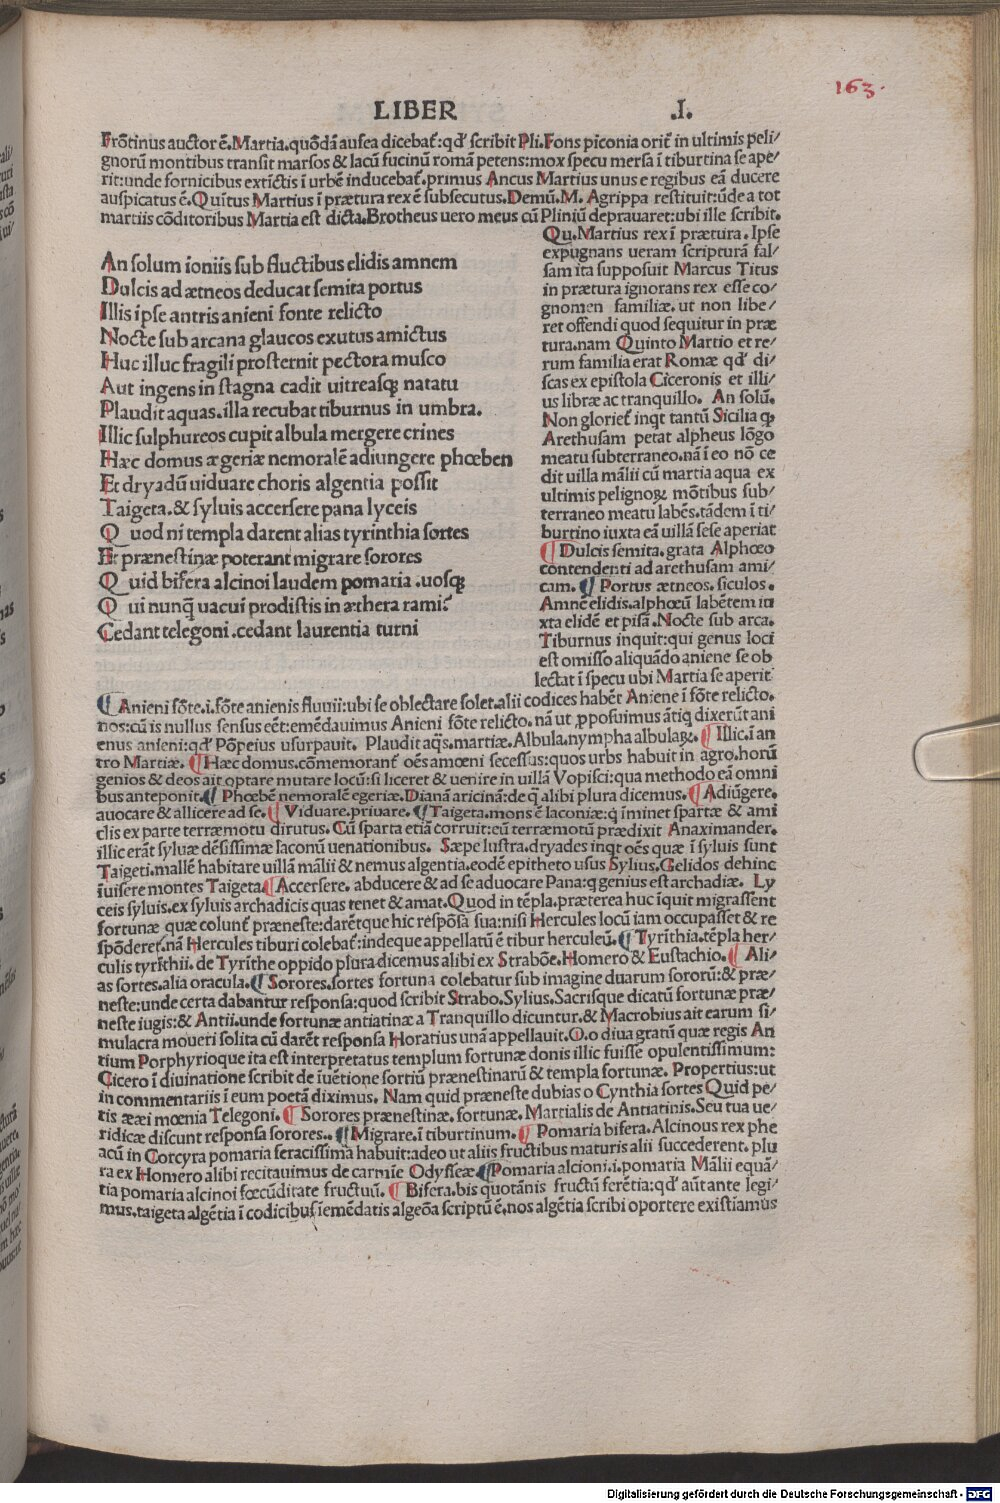 163.
LIBER .I.
Frōtinus auctor ē.Martia.quōdā aufea dicebat̄:qd' scribit Pli.Fons piconia orit̄ in ultimis peli/
gnorū montibus transit marsos & lacū fucinū romā petens:mox specu mersa ī tiburtina se ape/
rit:unde fornicibus extīctis ī urbē inducebat̄.primus Ancus Martius unus e regibus eā ducere
auspicatus ē.Quītus Martius ī prætura rex ē subsecutus.Demū.M.Agrippa restituit:ūde a tot
martiis cōditoribus Martia est dicta.Brotheus uero meus cū Pliniū deprauaret:ubi ille scribit.
Qu.Martius rex ī prætura.Ipse
expugnans ueram scripturā fal/
sam ita supposuit Marcus Titus
in prætura ignorans rex esse co/
gnomen familiæ.ut non libe/
ret offendi quod sequitur in præ
tura.nam Quinto Martio et re/
rum familia erat Romæ qd' di/
scas ex epistola Ciceronis et illi/
us libræ ac tranquillo. An solū.
Non gloriet̄ inqt tantū Sicilia q
Arethusam petat alpheus lōgo
meatu subterraneo.nā ī eo nō ce
dit uilla mālii cū martia aqua ex
ultimis pelignoꝝ mōtibus sub/
terraneo meatu labēs.tādem ī ti/
burtino iuxta eā uillā sese aperiat
¶ Dulcis semita.grata Alphœo
contendenti ad arethusam ami/
cam. ¶ Portus ætneos.siculos.
Amnē elidis.alphœū labētem iu
xta elidē et pisā.Nocte sub arca.
Tiburnus inquit:qui genus loci
est omisso aliquādo aniene se ob
lectat ī specu ubi Martia se aperit
An solum ioniis sub fluctibus elidis amnem
Dulcis ad ætneos deducat semita portus
Illis ipse antris anieni fonte relicto
Nocte sub arcana glaucos exutus amictus
Huc illuc fragili prosternit pectora musco
Aut ingens in stagna cadit uitreasqꝫ natatu
Plaudit aquas.illa recubat tiburnus in umbra.
Illic sulphureos cupit albula mergere crines
Hæc domus ægeriæ nemoralē adiungere phœben
Et dryadū uiduare choris algentia possit
Taigeta.& syluis accersere pana lyceis
Q uod ni templa darent alias tyrinthia sortes
Et prænestinæ poterant migrare sorores
Q uid bifera alcinoi laudem pomaria .uosqꝫ
Q ui nunq̄ uacui prodistis in æthera rami?
Cedant telegoni.cedant laurentia turni
¶ Anieni fōte.i.fōte anienis fluuii:ubi se oblectare solet.alii codices habēt Aniene ī fōte relicto.
nos:cū is nullus sensus eēt:emēdauimus Anieni fōte relicto.nā ut ꝓposuimus ātiq dixerūt ani
enus anieni:qd' Pōpeius usurpauit. Plaudit aq̄s.martiæ.Albula.nympha albulaꝝ.¶ Illic.ī an
tro Martiæ. ¶ Hæc domus.cōmemorant̄ oēs amœni secessus:quos urbs habuit in agro.horū
genios & deos ait optare mutare locū:si liceret & uenire in uillā Vopisci:qua methodo eā omni
bus anteponit.¶ Phœbēn nemoralē egeriæ.Dianā aricinā:de q̄ alibi plura dicemus.¶ Adiūgere.
auocare & allicere ad se.¶ Viduare.priuare.¶ Taigeta.mons ē laconiæ:q īminet spartæ & ami
clis ex parte terræmotu dirutus. Cū sparta etiā corruit:eū terræmotū prædixit Anaximander.
illic erāt syluæ dēsissimæ laconū uenationibus. Sæpe lustra.dryades inqt oēs quæ ī syluis sunt
Taigeti.mallē habitare uillā mālii & nemus algentia.eodē epitheto usus Sylius.Gelidos dehinc
īuisere montes Taigeta.¶ Accersere. abducere & ad se aduocare Pana:q genius est archadiæ. Ly
ceis syluis.ex syluis archadicis quas tenet & amat.Quod in tēpla.præterea huc īquit migrassent
fortunæ quæ colunt̄ præneste:darētque hic respōsa sua:nisi Hercules locū iam occupasset & re
spōderet.nā Hercules tiburi colebat̄:indeque appellatū ē tibur herculeū.¶ Tyrīthia.tēpla her/
culis tyrīthii. de Tyrīthe oppido plura dicemus alibi ex Strabōe.Homero & Eustachio.¶ Ali/
as sortes.alia oracula.¶ Sorores.sortes fortuna colebatur sub imagine duarum sororū:& præ/
neste:unde certa dabantur responsa:quod scribit Strabo.Sylius.Sacrisque dicatū fortunæ præ/
neste iugis:& Antii.unde fortunæ antiatinæ a Tranquillo dicuntur.& Macrobius ait earum si/
mulacra moueri solita cū darēt responsa Horatius unā appellauit.O.o diua gratū quæ regis An
tium Porphyrioque ita est interpretatus templum fortunæ donis illic fuisse opulentissimum:
Cicero ī diuinatione scribit de īuētione sortiū prænestinarū & templa fortunæ. Propertius:ut
in commentariis ī eum poetā diximus. Nam quid præneste dubias o Cynthia sortes Quid pe/
tis ææi mœnia Telegoni. ¶ Sorores prænestinæ. fortunæ. Martialis de Antiatinis.Seu tua ue/
ridicæ discunt responsa sorores..¶ Migrare.ī tiburtinum.¶ Pomaria bifera.Alcinous rex phe
acū in Corcyra pomaria feracissima habuit:adeo ut aliis fructibus maturis alii succederent. plu
ra ex Homero alibi recitauimus de carmīe Odysseæ ¶ Pomaria alcioni.i.pomaria Mālii equā/
tia pomaria alcinoi fœcūditate fructuū. ¶ Bifera.bis quotānis fructū ferētia:qd' aūt ante legi/
mus.taigeta algētia ī codicibus īemēdatis algeōa scriptū ē.nos algētia scribi oportere existiamus
Digitalisierung gefördert durch die Deutsche Forschungsgemeinschaft - DFG